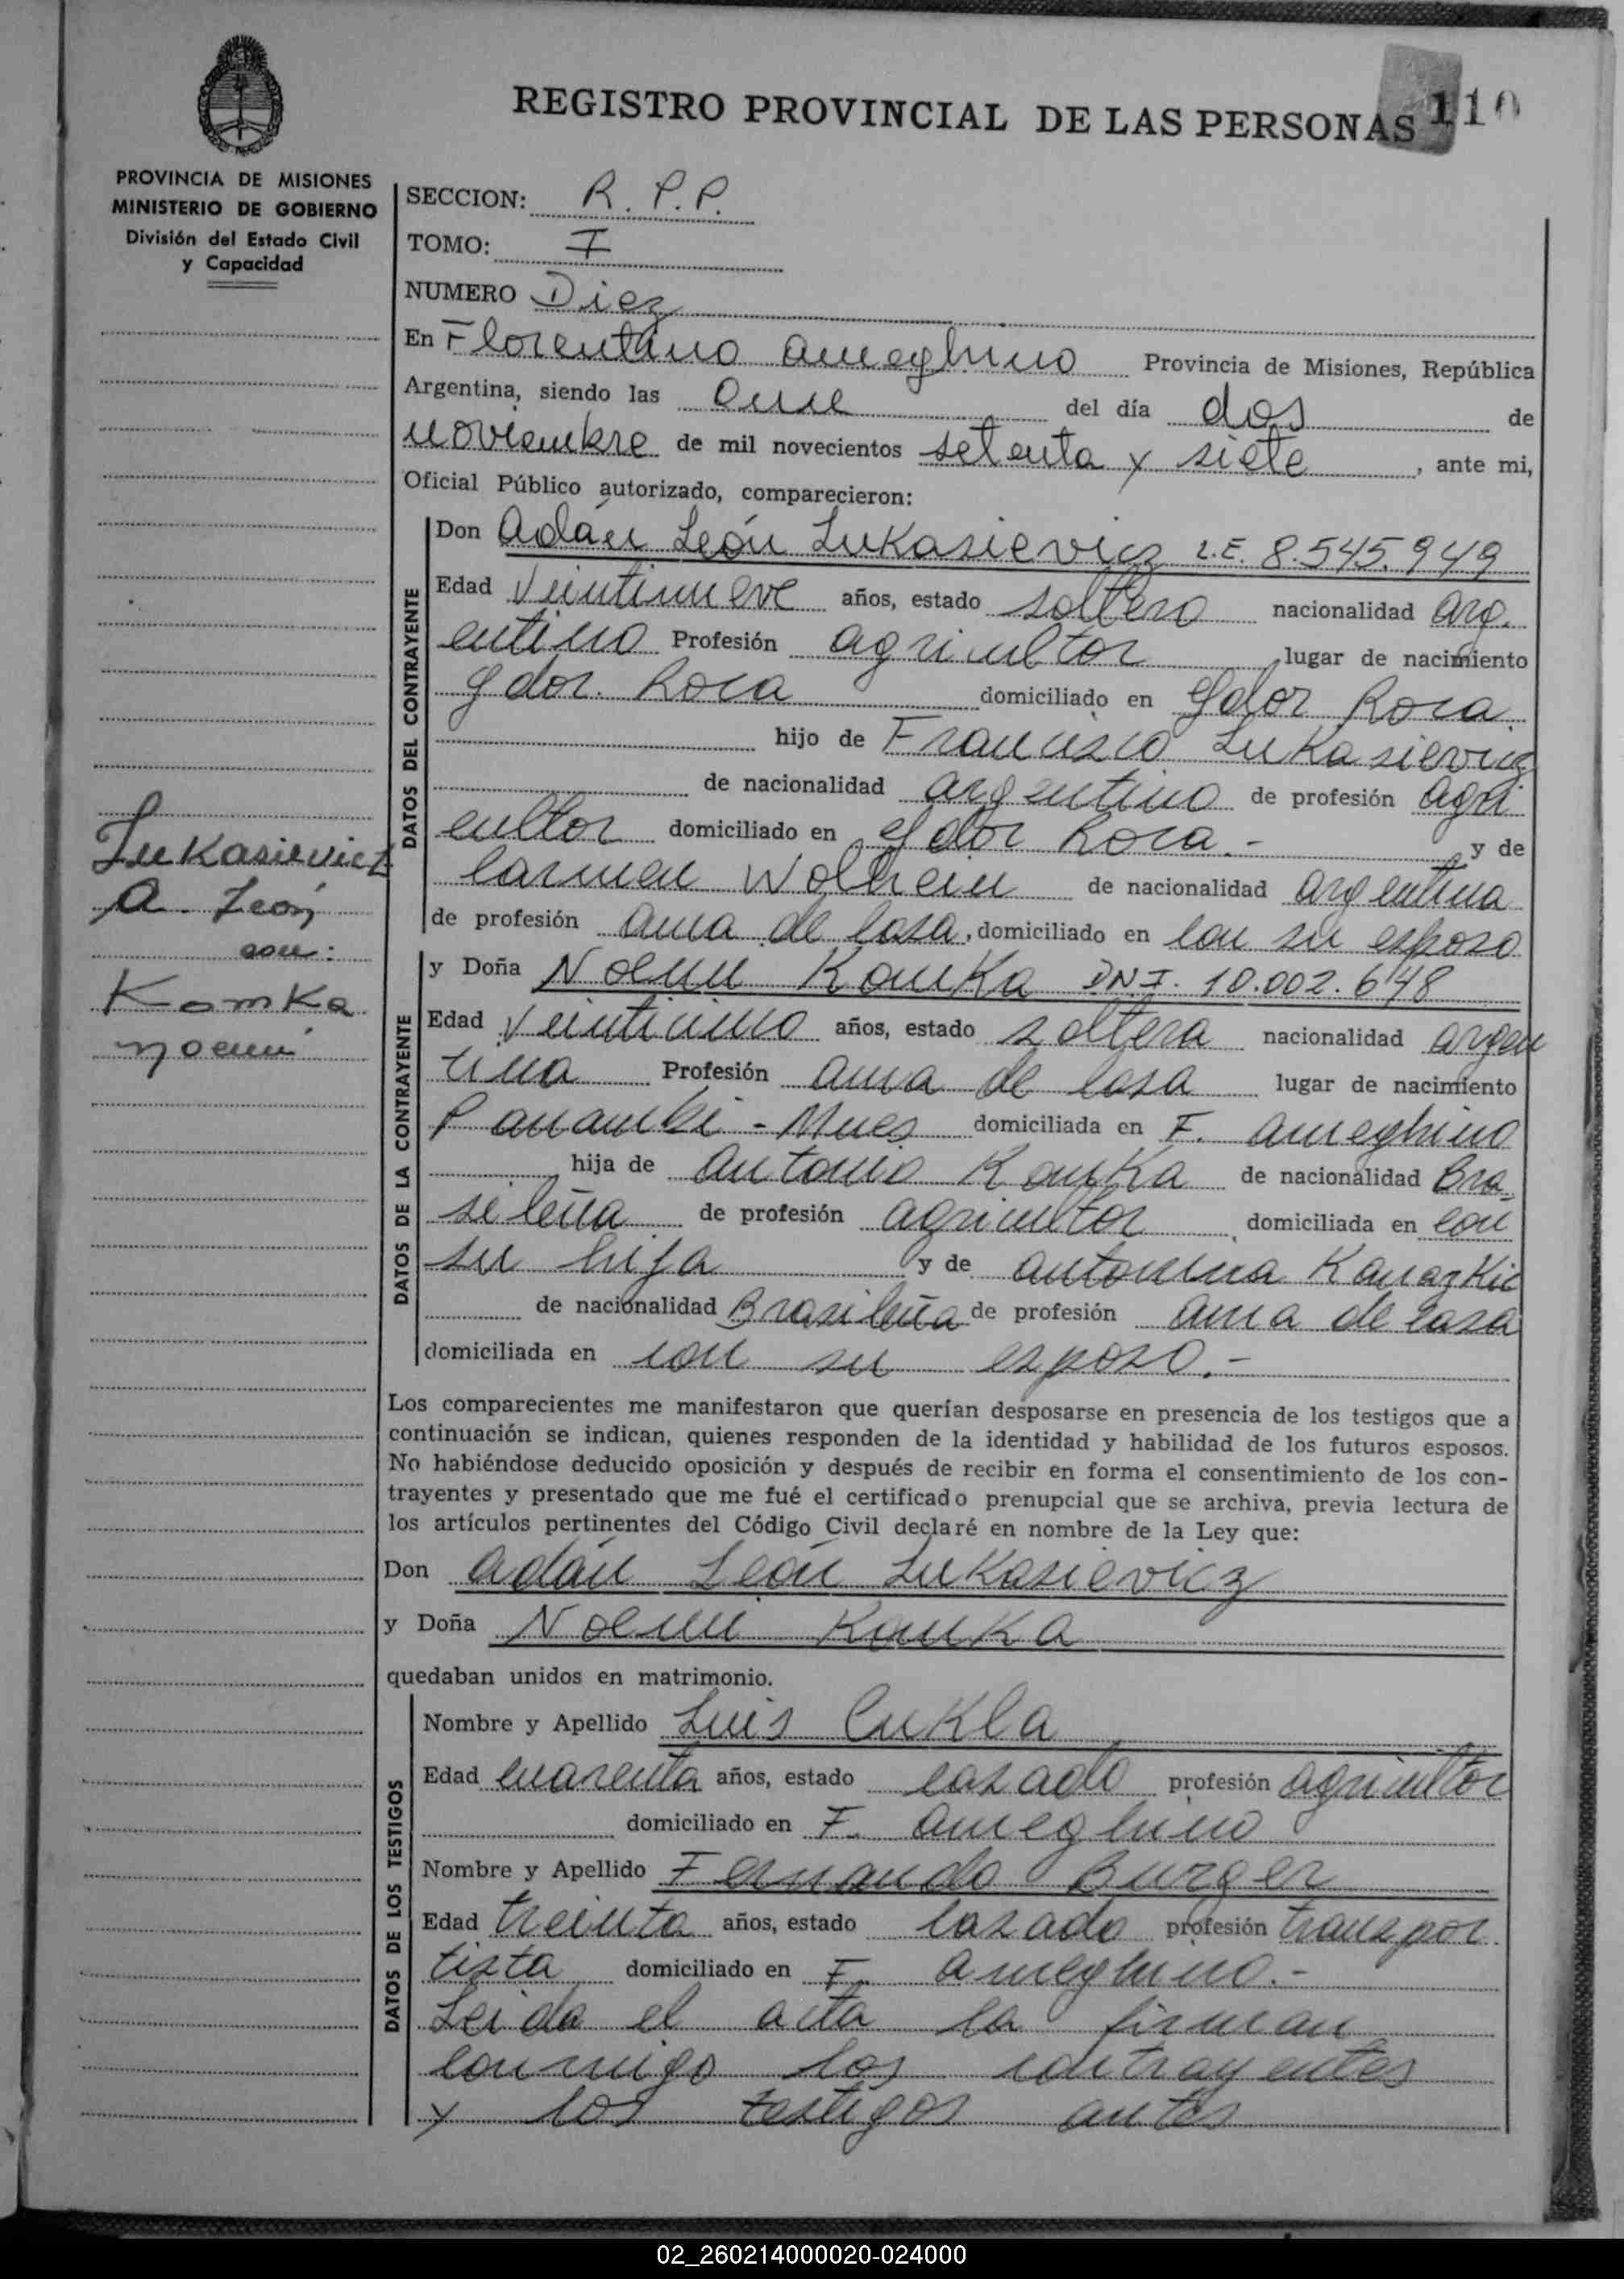 REGISTRO PROVINCIAL DE LAS PERSONAS 110
PROVINCIA DE MISIONES
MINISTERIO DE GOBIERNO
División del Estado Civil
y Capacidad
SECCION: R. P. P.
TOMO: I
NUMERO Diez
En Florentino Ameghino Provincia de Misiones, República
Argentina, siendo las once del día dos de
noviembre de mil novecientos setenta y siete, ante mi,
Oficial Público autorizado, comparecieron:
DATOS DEL CONTRAYENTE
Don Adán León Lukasievicz L.E. 8.545.949
Edad Veintinueve años, estado soltero nacionalidad arg.
entino Profesión agricultor lugar de nacimiento
Gdor. Roca domiciliado en Gdor Roca
hijo de Francisco Lukasievicz
de nacionalidad argentino de profesión agri
cultor domiciliado en Gdor Roca.- y de
Carmen de nacionalidad argentina
de profesión ama de casa, domiciliado en con su esposo
Lukasievicz
A. León
con:
Komka
Noemi
DATOS DE LA CONTRAYENTE
y Doña Noemi Komka DN.I. 10.002.648
Edad años, estado soltera nacionalidad argen
tina Profesión ama de casa lugar de nacimiento
Panambi - Mnes domiciliada en F. Ameghino
hija de Antonio Komka de nacionalidad Bra-
sileña de profesión agricultor domiciliada en con
su hija y de Antonina
de nacionalidad Brasileña de profesión ama de casa
domiciliada en con su esposo.-
Los comparecientes me manifestaron que querían desposarse en presencia de los testigos que a
continuación se indican, quienes responden de la identidad y habilidad de los futuros esposos.
No habiéndose deducido oposición y después de recibir en forma el consentimiento de los con-
trayentes y presentado que me fué el certificado prenupcial que se archiva, previa lectura de
los artículos pertinentes del Código Civil declaré en nombre de la Ley que:
Don Adán León Lukasievicz
y Doña Noemi Komka
quedaban unidos en matrimonio.
DATOS DE LOS TESTIGOS
Nombre y Apellido Luis Cukla
Edad cuarenta años, estado casado profesión agricultor
domiciliado en F. Ameghino
Nombre y Apellido Fernando Burger
Edad treinta años, estado casado profesión transpor
tista domiciliado en F. Ameghino.-
Leida el acta la firman
conmigo los contrayentes
y los testigos antes
02_260214000020-024000